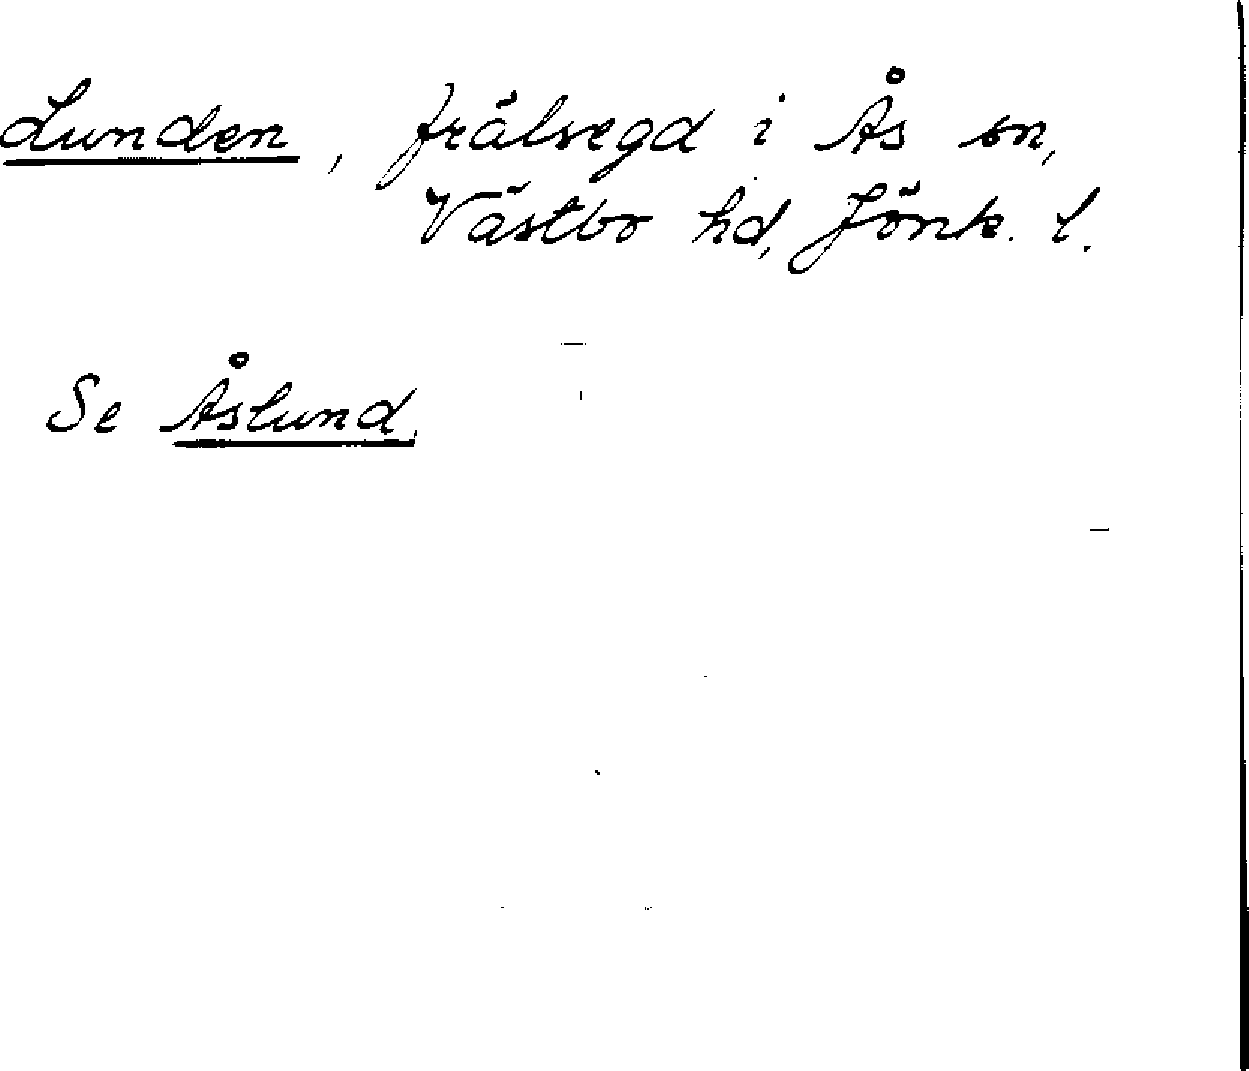 Lunden, frälsegd i Ås sn,
Västbo hd, Jönk. l.
Se Åslund.